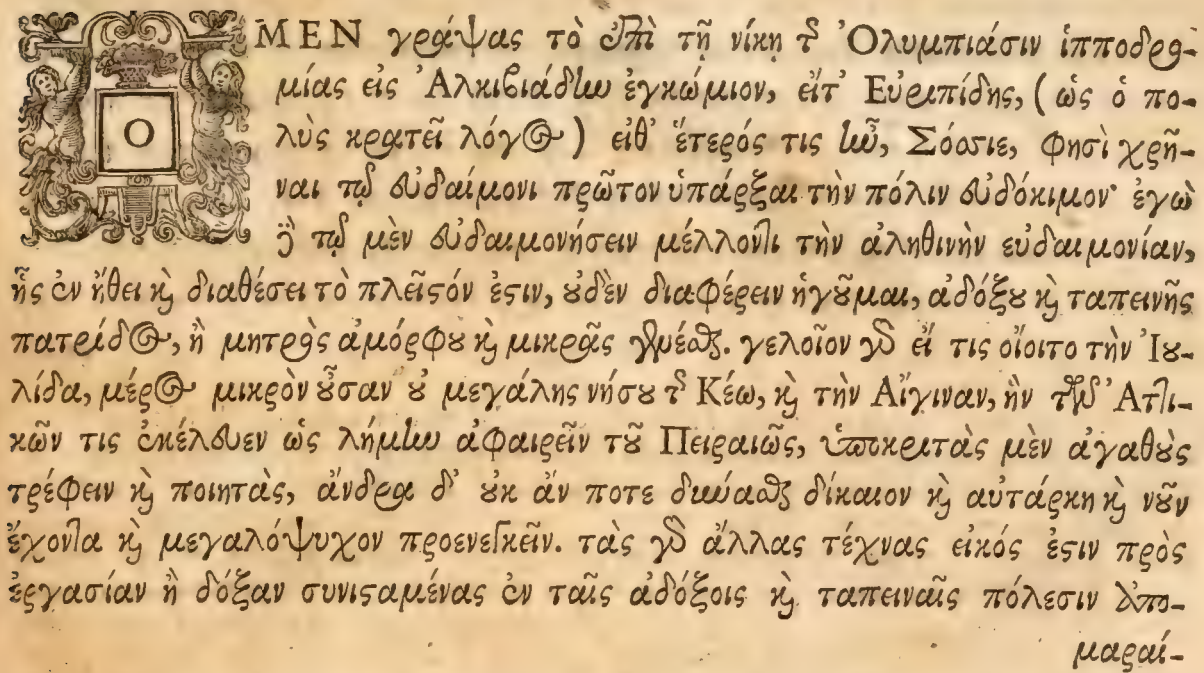 Ο ΜΕΝ γράψας τὸ ἐπὶ τῇ νίκῃ τ῀ Ὀλυμπιάσιν ἱπποδρο-
μίας εἰς Ἀλκιβιάδην ἐγκώμιον, εἴτ' Εὐριπίδης, (ὡς ὁ πο-
λὺς κρατεῖ λόγος) εἴθ' ἕτερός τις ἦν, Σόσσιε, φησὶ χρῆ-
ναι τῷ εὐδαίμονι πρῶτον ὑπάρξαι τὴν πόλιν εὐδόκιμον· ἐγὼ
δὲ τῷ μὲν εὐδαιμονήσειν μέλλοντι τὴν ἀληθινὴν εὐδαιμονίαν,
ἧς ἐν ἤθει καὶ διαθέσει τὸ πλεῖστόν ἐστιν, οὐδὲν διαφέρειν ἡγοῦμαι, ἀδόξου καὶ ταπεινῆς
πατρίδος, ἢ μητρὸς ἀμόρφου καὶ μικρᾶς γενέσθαι. γελοῖον γὰρ εἴ τις οἴοιτο τὴν Ἰου-
λίδα, μέρος μικρὸν οὖσαν οὐ μεγάλης νήσου τ῀ Κέω, καὶ τὴν Αἴγιναν, ἣν τῶν Ἀττι-
κῶν τις ἐκέλευεν ὡς λήμην ἀφαιρεῖν τοῦ Πειραιῶς, ὑποκριτὰς μὲν ἀγαθοὺς
τρέφειν καὶ ποιητὰς, ἄνδρα δ' οὐκ ἄν ποτε δύνασθαι δίκαιον καὶ αὐτάρκη καὶ νοῦν
ἔχοντα καὶ μεγαλόψυχον προενεγκεῖν. τὰς γὰρ ἄλλας τέχνας εἰκός ἐστιν πρὸς
ἐργασίαν ἢ δόξαν συνισταμένας ἐν ταῖς ἀδόξοις καὶ ταπειναῖς πόλεσιν ἀπο-
μαραί-